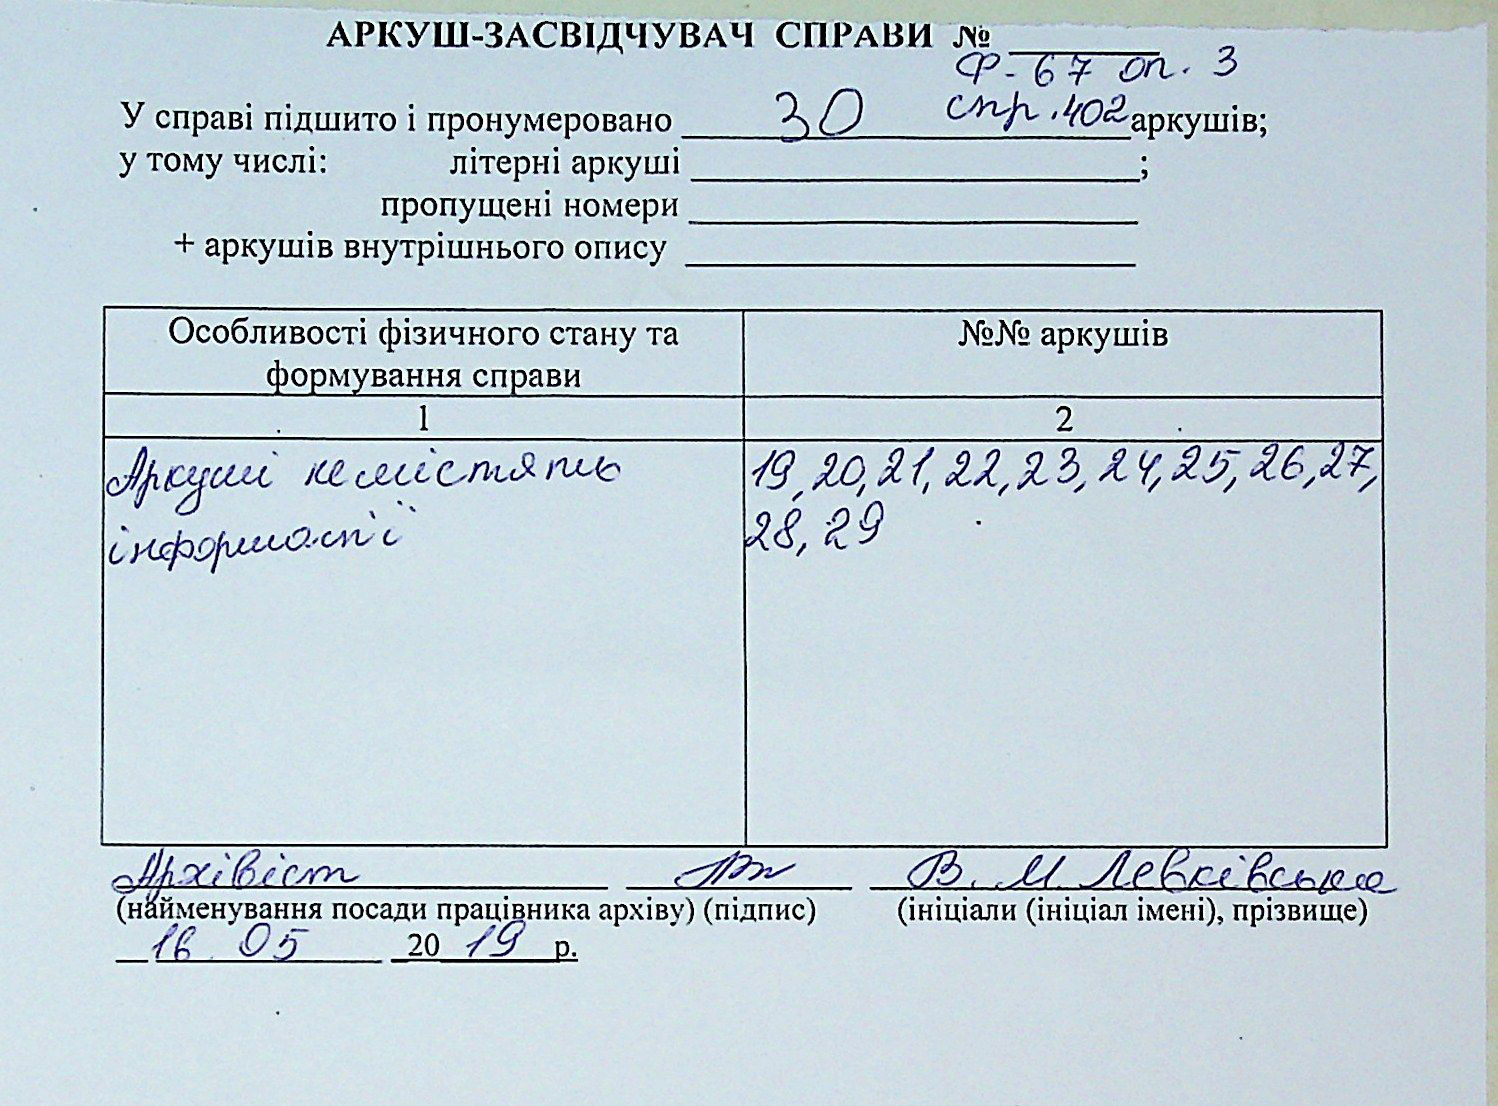 АРКУШ-ЗАСВІДЧУВАЧ СПРАВИ № ________
Ф-67 оп. 3
спр. 402
У справі підшито і пронумеровано 30 аркушів;
у тому числі: літерні аркуші ________;
пропущені номери ________
+ аркушів внутрішнього опису ________
Особливості фізичного стану та формування справи
№№ аркушів
1
2
Аркуші не містять
інформації
19, 20, 21, 22, 23, 24, 25, 26, 27,
28, 29
Архівіст В. М. Левківська
(найменування посади працівника архіву) (підпис) (ініціали (ініціал імені), прізвище)
16 05 2019 р.